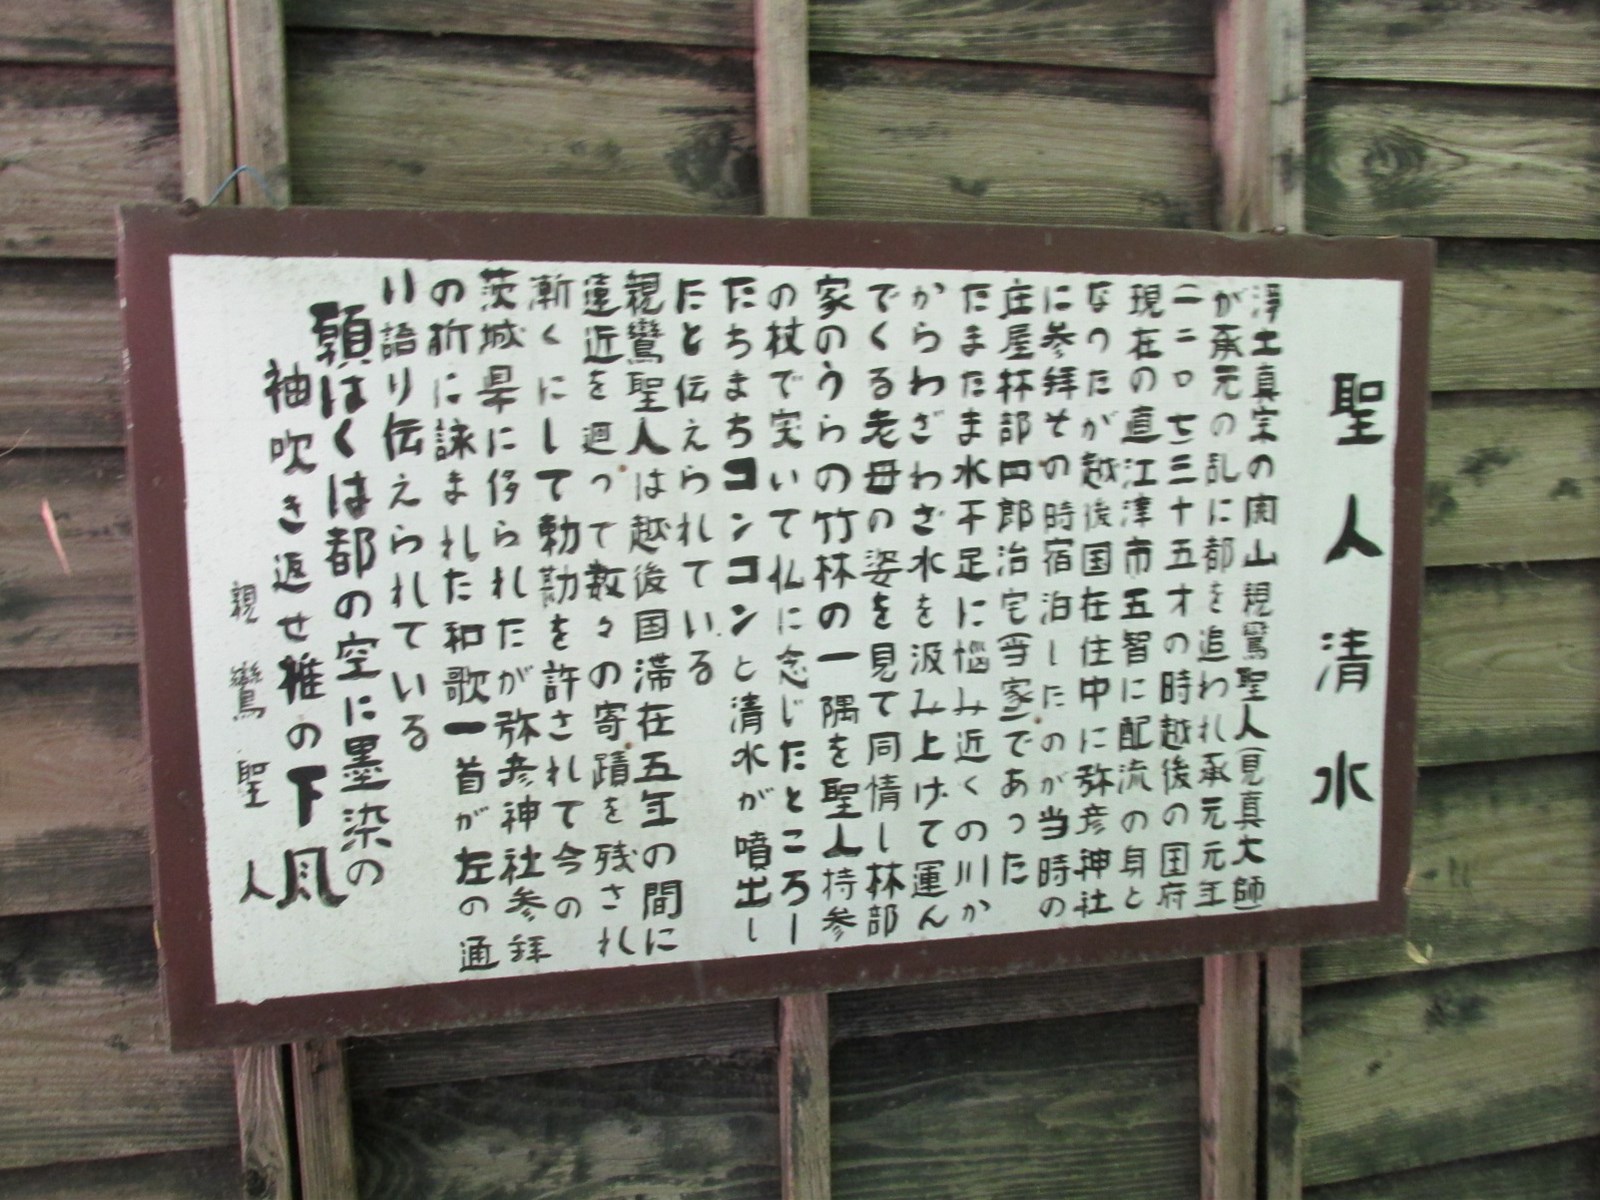 聖人清水
浄土真宗の開山親鸞聖人(見真大師)
が承元の乱に都を追われ承元元年
一二〇七三十五才の時越後の国府
現在の直江津市五智に配流の身と
なったが越後国在住中に弥彦神社
に参拝その時宿泊したのが当時の
庄屋林部四郎治宅(当家)であった
たまたま水不足に悩み近くの川か
からわざわざ水を汲み上げて運ん
でくる老母の姿を見て同情し林部
家のうらの竹林の一隅を聖人持参
の杖で突いて仏に念じたところー
たちまちコンコンと清水が噴出し
たと伝えられている
親鸞聖人は越後国滞在五年の間に
遠近を廻って数々の寄蹟を残され
漸くにして勅勘を許されて今の
茨城県に移られたが弥彦神社参拝
の折に詠まれた和歌一首が左の通
い語り伝えられている
願はくは都の空に墨染の
袖吹き返せ椎の下風
親鸞聖人